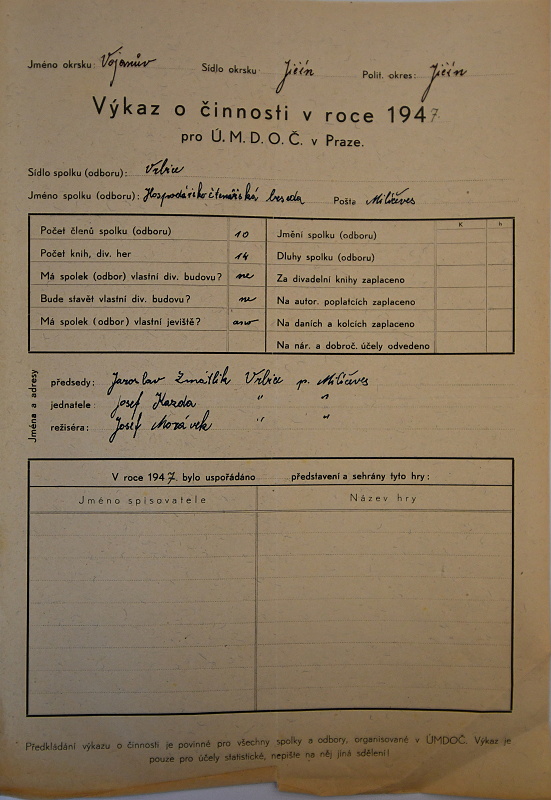 Jméno okrsku: Vojanův Sídlo okrsku Jičín Polit. okres: Jičín
Výkaz o činnosti v roce 1947
pro Ú. M. D. O. Č. v Praze.
Sídlo spolku (odboru): Vrbice
Jméno spolku (odboru): Hospodářsko čtenářská beseda Pošta Miličeves
K h
Počet členů spolku (odboru) 10 Jmění spolku (odboru)
Počet knih, div. her 14 Dluhy spolku (odboru)
Má spolek (odbor) vlastní div. budovu? ne Za divadelní knihy zaplaceno
Bude stavět vlastní div. budovu? ne Na autor. poplatcích zaplaceno
Má spolek (odbor) vlastní jeviště? ano Na daních a kolcích zaplaceno
Na nár. a dobroč. účely odvedeno
Jména a adresy
předsedy: Jaroslav Zmátlík Vrbice p. Miličeves
jednatele: Josef Kazda " "
režiséra: Josef Morávek " "
V roce 1947. bylo uspořádáno představení a sehrány tyto hry:
Jméno spisovatele Název hry
Předkládání výkazu o činnosti je povinné pro všechny spolky a odbory, organisované v ÚMDOČ. Výkaz je
pouze pro účely statistické, nepište na něj jiná sdělení!